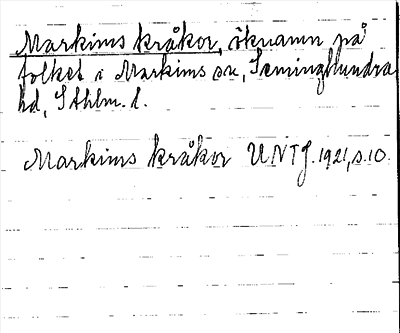 Markims kråkor, öknamn på
folket i Markims sn, Seminghundra
hd, Sthlm. l.
Markims kråkor UNTJ. 1921, s. 10.